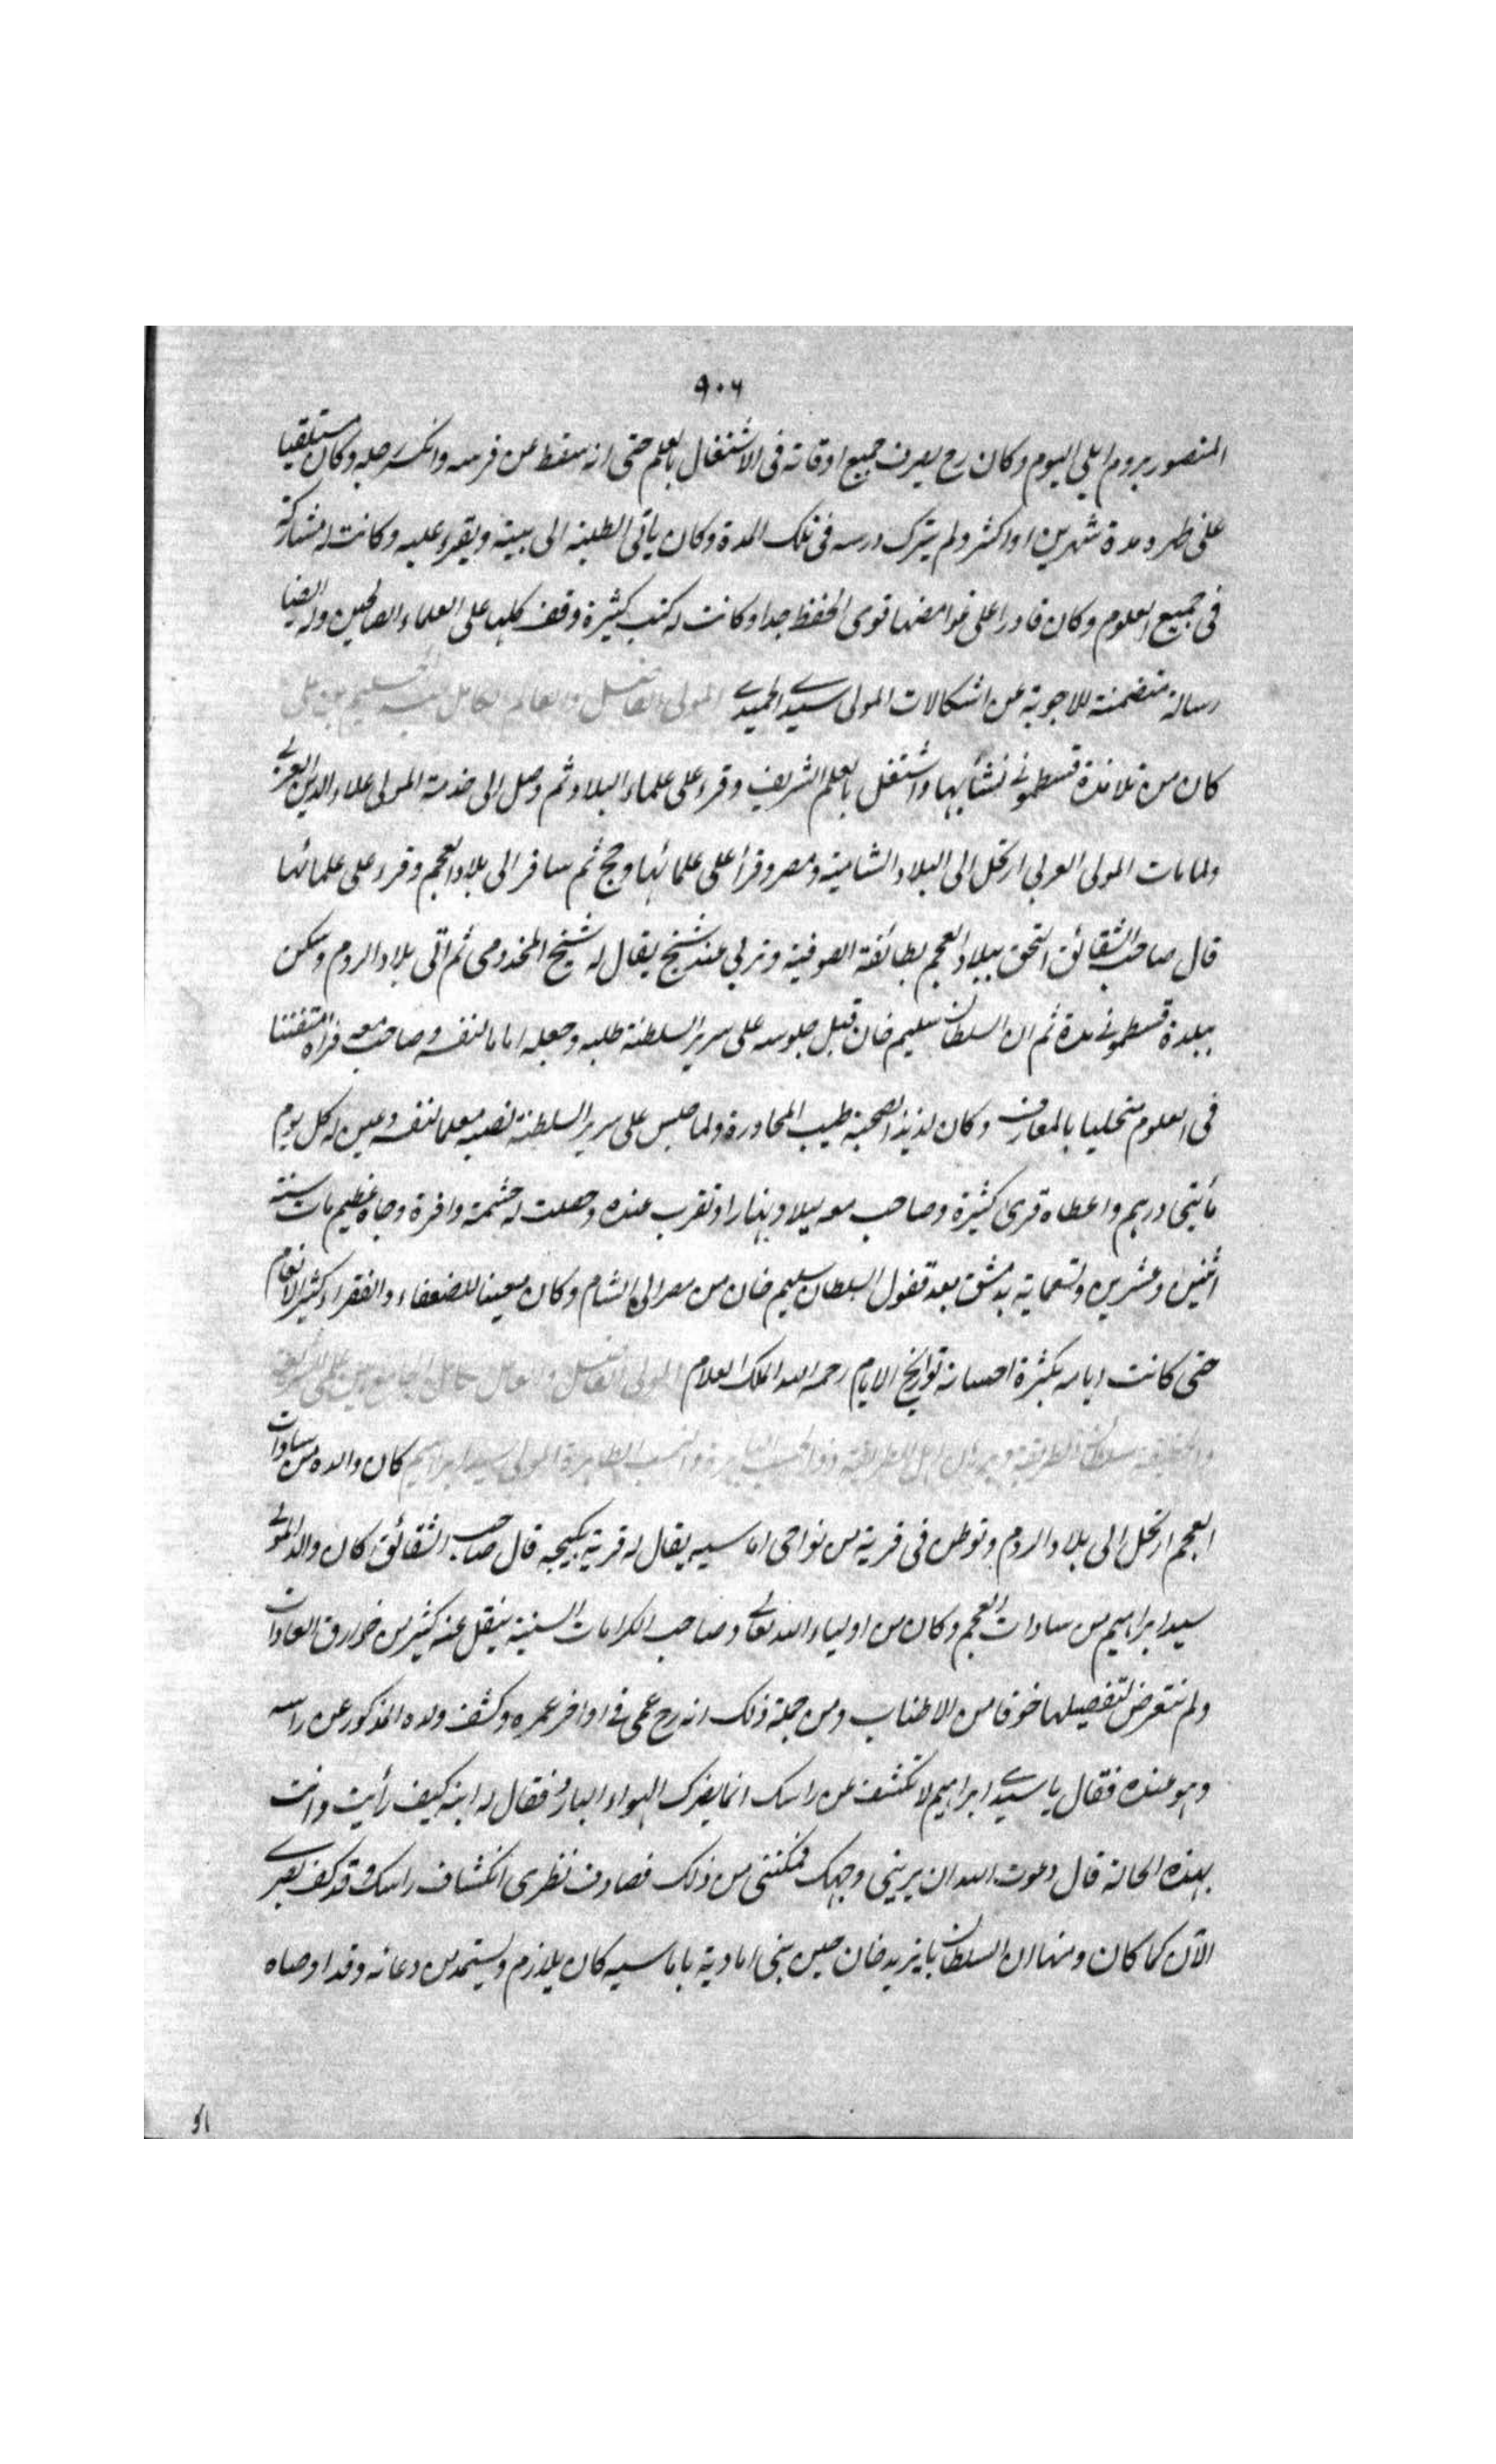 ٩٠٦
المنصور بروم ايلى اليوم وكان رح يصرف جميع اوقاته فى الاشتغال بالعلم حتى انه سقط عن فرسه وانكسر رجله وكان مستلقيا
على ظهره مدة شهرين او اكثر ولم يترك درسه فى تلك المدة وكان ياتى الطلبة الى بيته ويقرء عليه وكانت له مشاركة
فى جميع العلوم وكان قادرا على غوامضها قوى الحفظ جدا وكانت له كتب كثيرة وقف كلها على العلماء الصالحين وله ايضا
رسالة متضمنة للاجوبة عن اشكالات المولى سيدى الحميدى المولى الفاضل والعالم الكامل عبد الحليم بن على
كان من تلامذة قسطمونى نشأ بها واشتغل بالعلم الشريف وقرء على علماء البلاد ثم وصل الى خدمة المولى علاء الدين العربى
ولما مات المولى العربى ارتحل الى البلاد الشامية ومصر وقرأ على علمائها وحج ثم سافر الى بلاد العجم وقرء على علمائها
قال صاحب الشقائق التحق ببلاد العجم بطائفة الصوفية وتربى عند شيخ يقال له شيخ المخدومى ثم اتى بلاد الروم وسكن
ببلدة قسطمونى مدة ثم ان السلطان سليم خان قبل جلوسه على سرير السلطنة طلبه وجعله اماما لنفسه وصاحب معه فرآه متفننا
فى العلوم متحليا بالمعارف وكان لذيذ الصحبة طيب المحاورة ولما جلس على سرير السلطنة نصبه معلما لنفسه وعين له كل يوم
مأيتى درهم واعطاه قرى كثيرة وصاحب معه ليلا ونهارا وتقرب عنده وحصلت له حشمة وافرة وجاه عظيم مات سنة
اثنين وعشرين وتسعماية بدمشق بعد قفول السلطان سليم خان من مصر الى الشام وكان معينا للضعفاء والفقراء كثير الانعام
حتى كانت ايامه بكثرة احسانه تواريخ الايام رحمه الله الملك العلام المولى الفاضل والعامل الكامل الجامع بين علمى الشريعة
والحقيقة سلطان الطريقة وبرهان اهل الطريقة ذو الحسب الباهرة والنسب الطاهرة المولى سيد ابراهيم كان والده من سادات
العجم ارتحل الى بلاد الروم وتوطن فى قرية من نواحى اماسيه يقال له قرية يكيجه قال صاحب الشقائق كان والد المولى
سيد ابراهيم من سادات العجم وكان من اولياء الله تعالى وصاحب الكرامات السنية ينقل عنه كثير من خوارق العادات
ولم نتعرض لتفصيلها خوفا من الاطناب ومن جملة ذلك انه رح عمى فى اواخر عمره وكشف ولده المذكور عن راسه
وهو عنده فقال يا سيدى ابراهيم لا تكشف عن راسك انما يضرك الهواء البارد فقال له ابنه كيف رأيت وانت
بهذه الحالة قال دعوت الله ان يرينى وجهك فمكننى من ذلك فصادف نظرى انكشاف راسك وقد كف بصرى
الآن كما كان ومنها ان السلطان بايزيد خان حين بنى امادية باماسيه كان يلازم ويستمد من دعائه وقد اوصاه